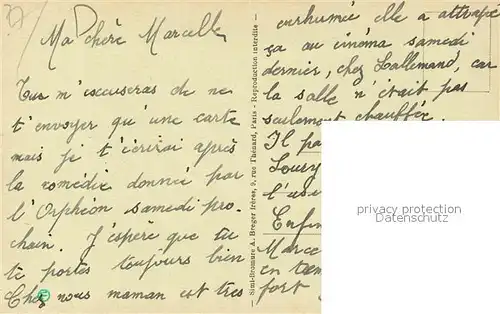 Ma chère Marcelle
Tu m'excuseras de ne
t'envoyer qu'une carte
mais je t'écrirai après
la comédie donné par
l'Orphéon samedi pro-
chain. J'éspère que tu
te portes toujours bien
Chez nous maman est tres
Simi-Bromure A. Breger frères, 9, rue Thénard, Paris - Reproduction interdite
enrhumée elle a attrapé
ça au cinéma samedi
dernier, chez Lallemand, car
la salle n'était pas
seulement chauffée.
Il
l'us
Enfin
Marce
en
fort
privacy protection
DATENSCHUTZ